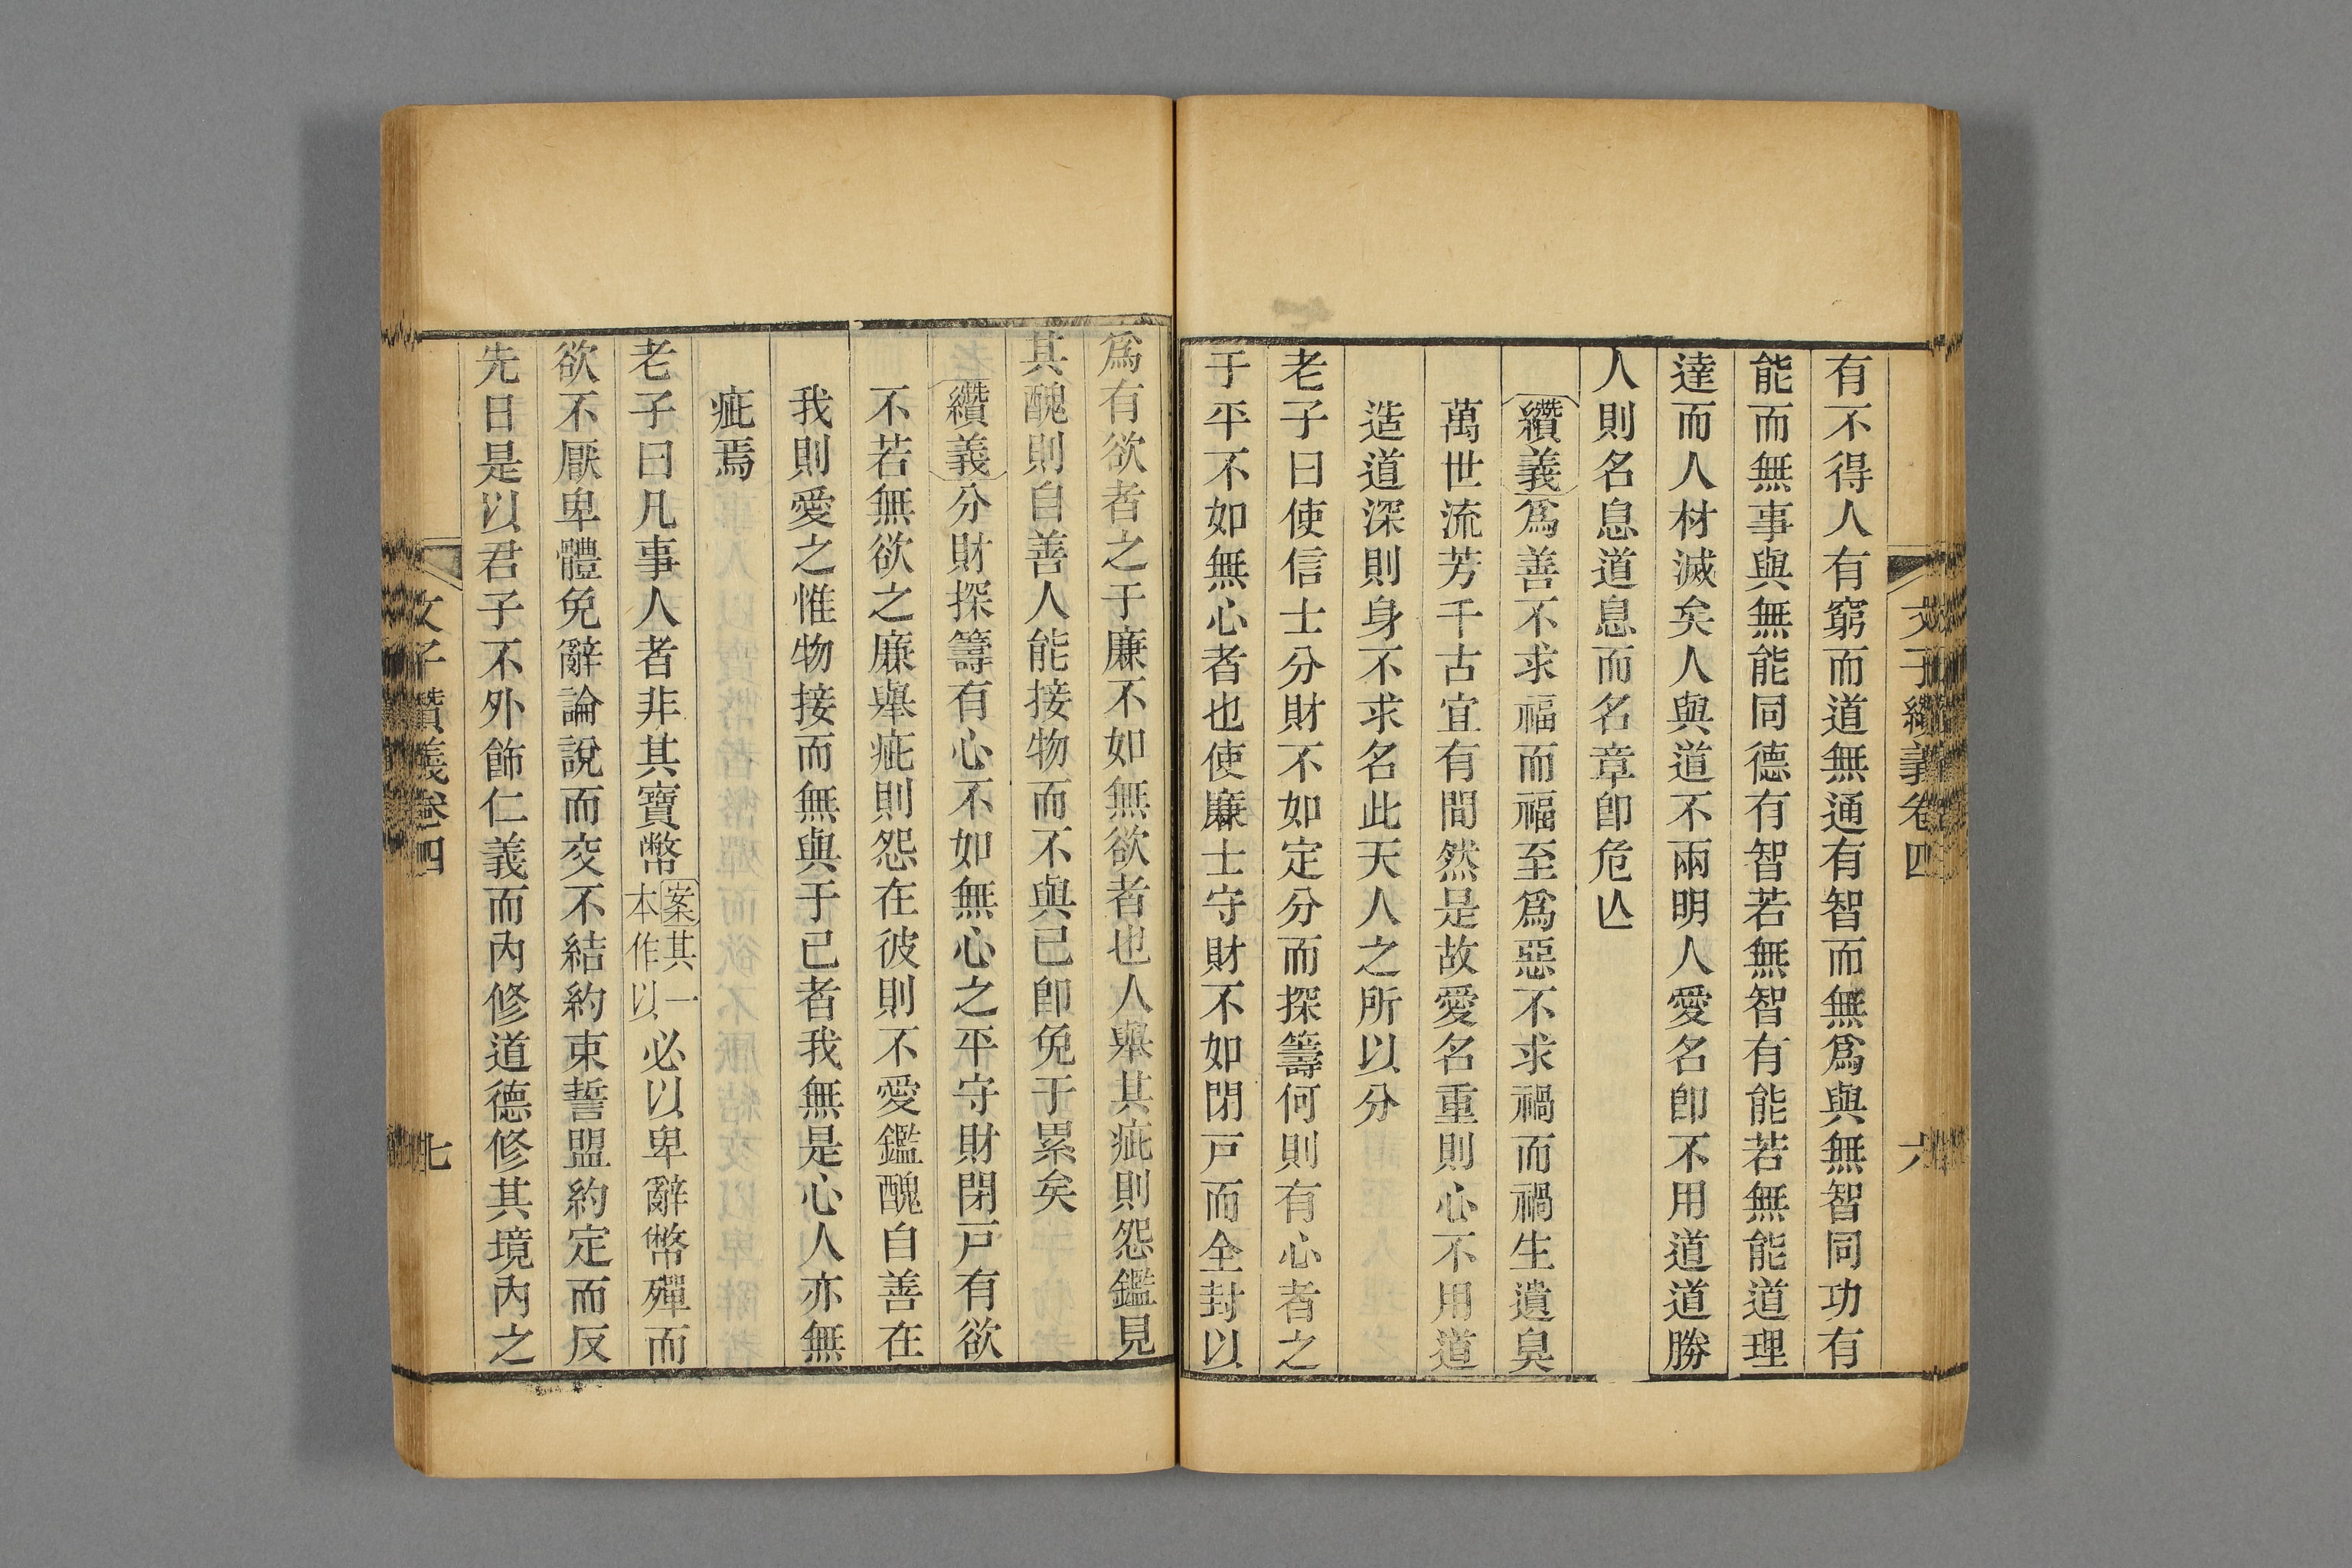 文子纘義卷四 六
有不得人有窮而道無通有智而無爲與無智同功有
能而無事與無能同德有智若無智有能若無能道理
達而人材滅矣人與道不兩明人愛名卽不用道道勝
人則名息道息而名章卽危亾
纘義爲善不求福而福至爲惡不求禍而禍生遺臭
萬世流芳千古宜有間然是故愛名重則心不用道
造道深則身不求名此天人之所以分
老子曰使信士分財不如定分而探籌何則有心者之
于平不如無心者也使廉士守財不如閉戸而全封以
爲有欲者之于廉不如無欲者也人舉其疵則怨鑑見
其醜則自善人能接物而不與已卽免于累矣
纘義分財探籌有心不如無心之平守財閉戸有欲
不若無欲之廉舉疵則怨在彼則不愛鑑醜自善在
我則愛之惟物接而無與于已者我無是心人亦無
疵焉
老子曰凡事人者非其寶幣案其一本作以必以卑辭幣殫而
欲不厭卑體免辭論說而交不結約束誓盟約定而反
先日是以君子不外飾仁義而內修道德修其境內之
文子纘義卷四 七